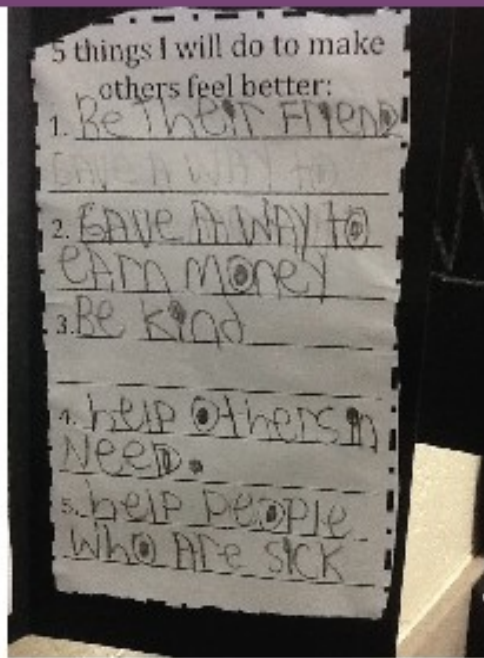 5 things I will do to make
others feel better:
1. Be Their FrienD
GAVE A WAY to
2. GAVE A WAY to
eArn money
3. Be kind
4. help others in
NeeD.
5. help people
who Are sick